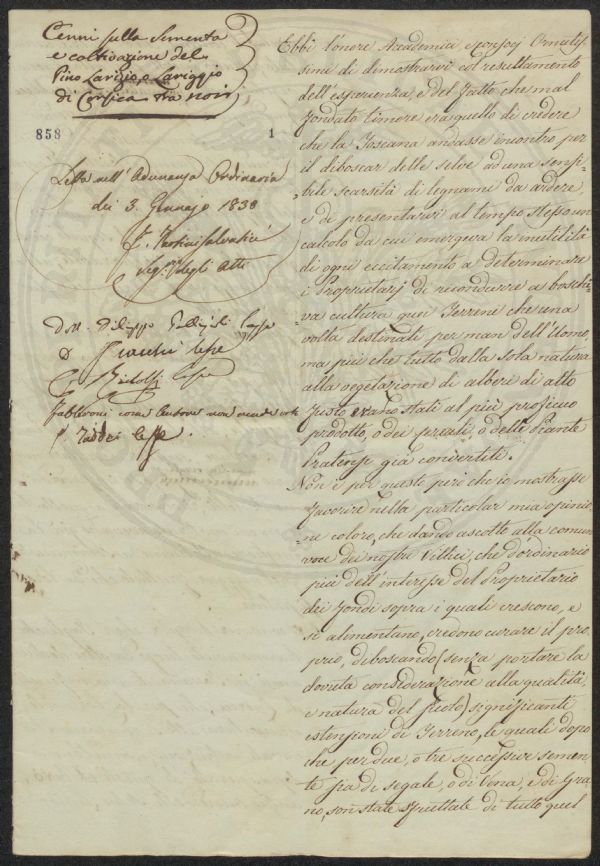 Cenni sulla Sementa
e coltivazione del
Pino Larizio, o Lariggio
di Corsica tra noi
858
1
Letta nell' Adunanza Ordinaria
dei 3. Gennajo 1830
Seg.rio degli Atti
Dott. Filippo lesse
lesse
Ridolfi lesse
Fabbroni come non
Taddei lesse.
Ebbi l'onore Accademici Ornatis-
simi di dimostrarvi col resultamento
dell'esperienza, e del fatto che mal
fondato timore era quello di credere
che la Toscana andasse incontro per
il diboscar delle selve ad una sensi-
bile scarsità di legname da ardere,
e di presentarvi al tempo stesso un
calcolo da cui emergeva la inutilità
di ogni eccitamento a determinare
i Proprietarj di recondurre a boschi-
va cultura quei Terreni che una
volta destinati per man dell'Uomo,
ma più che tutto dalla sola natura
alla vegetazione di alberi di alto
fusto erano stati al più proficuo
prodotto, o dei cereali, o delle Piante
Pratensi già convertiti.
Non è per questo però che io mostrasse
favorire nella particolar mia opinio-
ne coloro, che dando ascolto alla comun
voce dei nostri Villici, che d'ordinario
più dell'interesse del Proprietario
dei fondi sopra i quali crescono, e
si alimentano, credono curare il pro-
prio, diboscando (senza portare la
dovuta considerazione alla qualità,
e natura del suolo) significanti
estensioni di Terreno, le quali dopo
che per due, o tre successive semen-
te sia di segale, o di Vena, e di Gra-
no, son state sfruttate di tutto quel